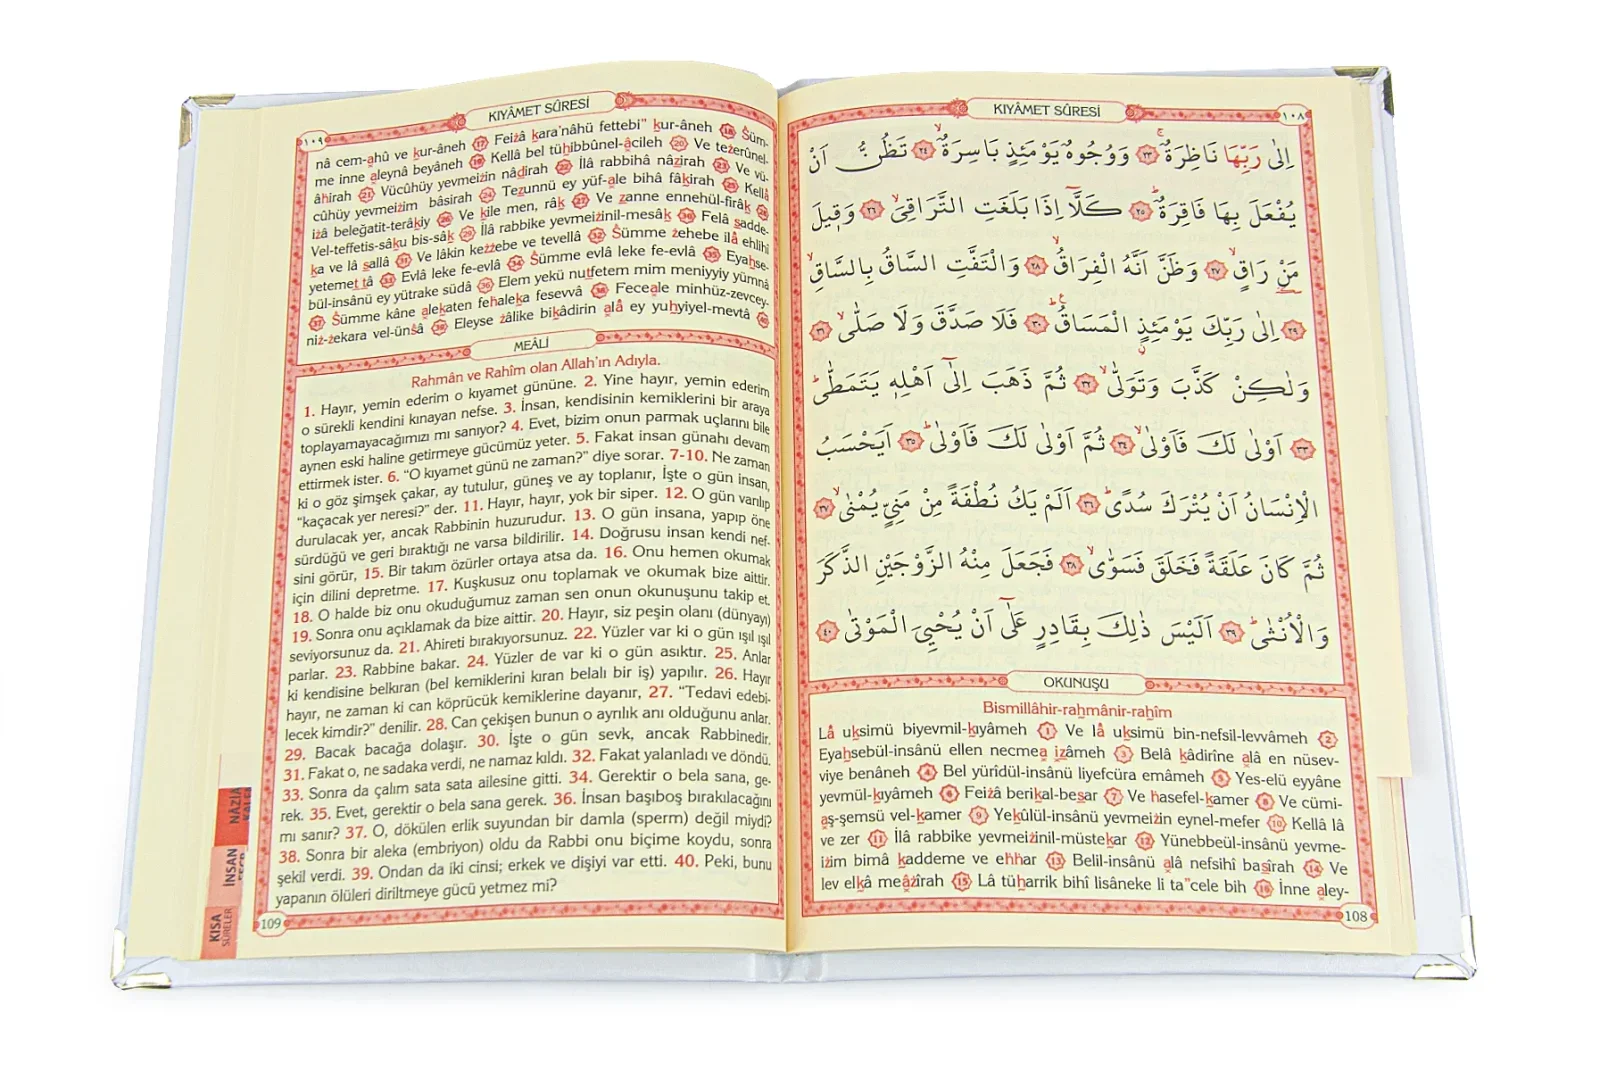 KIYÂMET SÛRESİ
١٠٨
اِلٰى رَبِّهَا نَاظِرَةٌۚ ﴿٢٣﴾ وَوُجُوهٌ يَوْمَئِذٍ بَاسِرَةٌۙ ﴿٢٤﴾ تَظُنُّ اَنْ
يُفْعَلَ بِهَا فَاقِرَةٌۜ ﴿٢٥﴾ كَلَّٓا اِذَا بَلَغَتِ التَّرَاقِيَۙ ﴿٢٦﴾ وَق۪يلَ
مَنْ رَاقٍۙ ﴿٢٧﴾ وَظَنَّ اَنَّهُ الْفِرَاقُۙ ﴿٢٨﴾ وَالْتَفَّتِ السَّاقُ بِالسَّاقِۙ
﴿٢٩﴾ اِلٰى رَبِّكَ يَوْمَئِذٍ الْمَسَاقُۜ ﴿٣٠﴾ فَلَا صَدَّقَ وَلَا صَلّٰىۙ ﴿٣١﴾
وَلٰكِنْ كَذَّبَ وَتَوَلّٰىۙ ﴿٣٢﴾ ثُمَّ ذَهَبَ اِلٰٓى اَهْلِه۪ يَتَمَطّٰىۜ
﴿٣٣﴾ اَوْلٰى لَكَ فَاَوْلٰىۙ ﴿٣٤﴾ ثُمَّ اَوْلٰى لَكَ فَاَوْلٰىۜ ﴿٣٥﴾ اَيَحْسَبُ
الْاِنْسَانُ اَنْ يُتْرَكَ سُدًىۜ ﴿٣٦﴾ اَلَمْ يَكُ نُطْفَةً مِنْ مَنِيٍّ يُمْنٰىۙ ﴿٣٧﴾
ثُمَّ كَانَ عَلَقَةً فَخَلَقَ فَسَوّٰىۙ ﴿٣٨﴾ فَجَعَلَ مِنْهُ الزَّوْجَيْنِ الذَّكَرَ
وَالْاُنْثٰىۜ ﴿٣٩﴾ اَلَيْسَ ذٰلِكَ بِقَادِرٍ عَلٰٓى اَنْ يُحْيِيَ الْمَوْتٰى ﴿٤٠﴾
OKUNUŞU
Bismillâhir-rahmânir-rahîm
Lâ uksimü biyevmil-kıyâmeh (1) Ve lâ uksimü bin-nefsil-levvâmeh (2)
Eyahsebül-insânü ellen necmea izâmeh (3) Belâ kâdirîne alâ en nüsev-
viye benâneh (4) Bel yürîdül-insânü liyefcüra emâmeh (5) Yes-elü eyyâne
yevmül-kıyâmeh (6) Feiżâ berikal-besar (7) Ve hasefel-kamer (8) Ve cümi-
aş-şemsü vel-kamer (9) Yekûlül-insânü yevmeiżin eynel-mefer (10) Kellâ lâ
ve zer (11) İlâ rabbike yevmeiżinil-müstekar (12) Yünebbeül-insânü yevme-
iżim bimâ kaddeme ve ehhar (13) Belil-insânü alâ nefsihî basîrah (14) Ve
lev elkâ meâżîrah (15) Lâ tüharrik bihî lisâneke li ta"cele bih (16) İnne aley-
108
KIYÂMET SÛRESİ
١٠٩
nâ cem-ahû ve kur-âneh (17) Feiżâ kara'nâhü fettebi" kur-âneh (18) Śüm-
me inne aleynâ beyâneh (19) Kellâ bel tühibbûnel-âcileh (20) Ve teżerûnel-
âhirah (21) Vücûhüy yevmeiżin nâdirah (22) İlâ rabbihâ nâzirah (23) Ve vü-
cûhüy yevmeiżim bâsirah (24) Tezunnü ey yüf-ale bihâ fâkirah (25) Kellâ
iżâ beleğatit-terâkiy (26) Ve kîle men, râk (27) Ve zanne ennehül-firâk (28)
Vel-teffetis-sâku bis-sâk (29) İlâ rabbike yevmeiżinil-mesâk (30) Felâ sadde-
ka ve lâ sallâ (31) Ve lâkin keżżebe ve tevellâ (32) Śümme żehebe ilâ ehlihî
yetemettâ (33) Evlâ leke fe-evlâ (34) Śümme evlâ leke fe-evlâ (35) Eyahse-
bül-insânü ey yütrake südâ (36) Elem yekü nutfetem mim meniyyiy yümnâ
(37) Śümme kâne alekaten fehaleka fesevvâ (38) Feceale minhüz-zevcey-
niż-żekara vel-ünśâ (39) Eleyse żâlike bikâdirin alâ ey yuhyiyel-mevtâ (40)
MEÂLİ
Rahmân ve Rahîm olan Allah'ın Adıyla.
1. Hayır, yemin ederim o kıyamet gününe. 2. Yine hayır, yemin ederim
o sürekli kendini kınayan nefse. 3. İnsan, kendisinin kemiklerini bir araya
toplayamayacağımızı mı sanıyor? 4. Evet, bizim onun parmak uçlarını bile
aynen eski haline getirmeye gücümüz yeter. 5. Fakat insan günahı devam
ettirmek ister. 6. "O kıyamet günü ne zaman?" diye sorar. 7-10. Ne zaman
ki o göz şimşek çakar, ay tutulur, güneş ve ay toplanır, İşte o gün insan,
"kaçacak yer neresi?" der. 11. Hayır, hayır, yok bir siper. 12. O gün varılıp
durulacak yer, ancak Rabbinin huzurudur. 13. O gün insana, yapıp öne
sürdüğü ve geri bıraktığı ne varsa bildirilir. 14. Doğrusu insan kendi nef-
sini görür, 15. Bir takım özürler ortaya atsa da. 16. Onu hemen okumak
için dilini depretme. 17. Kuşkusuz onu toplamak ve okumak bize aittir.
18. O halde biz onu okuduğumuz zaman sen onun okunuşunu takip et.
19. Sonra onu açıklamak da bize aittir. 20. Hayır, siz peşin olanı (dünyayı)
seviyorsunuz da. 21. Ahireti bırakıyorsunuz. 22. Yüzler var ki o gün ışıl ışıl
parlar. 23. Rabbine bakar. 24. Yüzler de var ki o gün asıktır. 25. Anlar
ki kendisine belkıran (bel kemiklerini kıran belalı bir iş) yapılır. 26. Hayır
hayır, ne zaman ki can köprücük kemiklerine dayanır, 27. "Tedavi edebi-
lecek kimdir?" denilir. 28. Can çekişen bunun o ayrılık anı olduğunu anlar.
29. Bacak bacağa dolaşır. 30. İşte o gün sevk, ancak Rabbinedir.
31. Fakat o, ne sadaka verdi, ne namaz kıldı. 32. Fakat yalanladı ve döndü.
33. Sonra da çalım sata sata ailesine gitti. 34. Gerektir o bela sana, ge-
rek. 35. Evet, gerektir o bela sana gerek. 36. İnsan başıboş bırakılacağını
mı sanır? 37. O, dökülen erlik suyundan bir damla (sperm) değil miydi?
38. Sonra bir aleka (embriyon) oldu da Rabbi onu biçime koydu, sonra
şekil verdi. 39. Ondan da iki cinsi; erkek ve dişiyi var etti. 40. Peki, bunu
yapanın ölüleri diriltmeye gücü yetmez mi?
109
İNSAN
KISA
SÛRELER